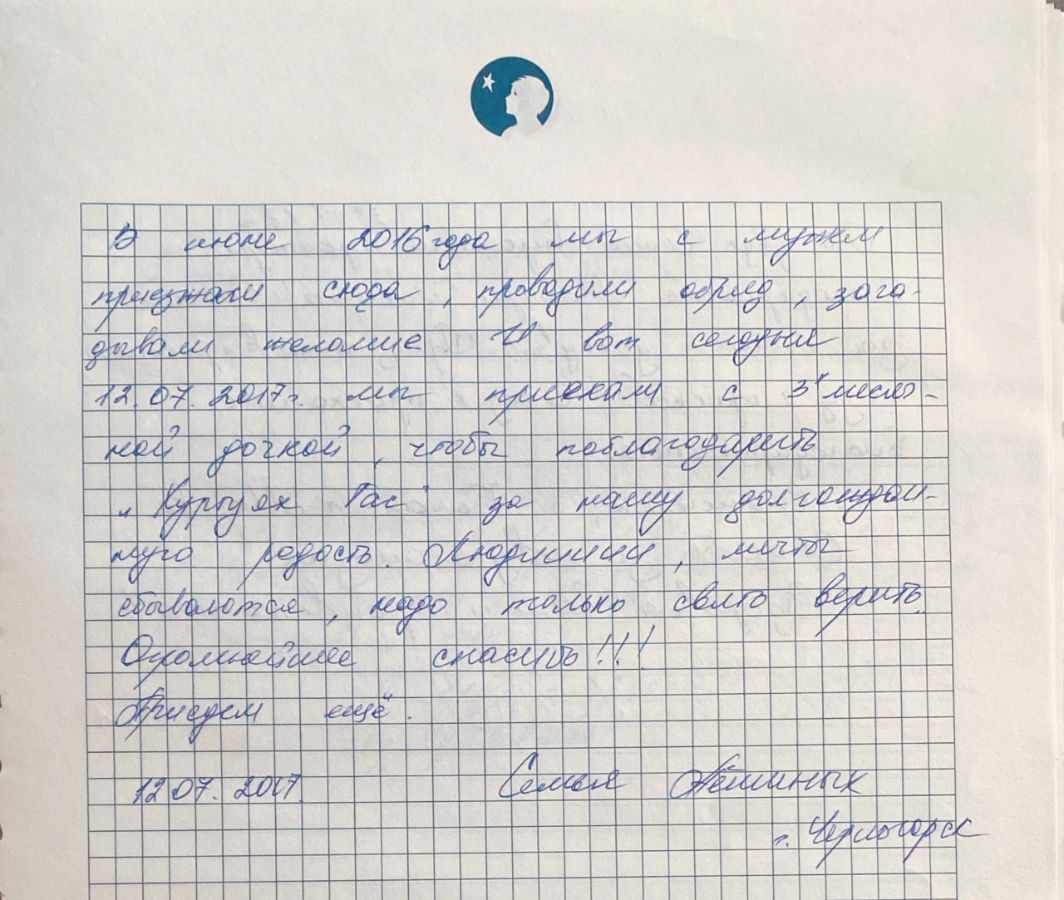 В июне 2016 года мы с мужем
приезжали сюда, проводили обряд, зага-
дывали желание И вот сегодня
12.07.2017г. мы приехали с 3х месяч-
ной дочкой, чтобы поблагодарить
„Куртуях Тас" за нашу долгождан-
ную радость. мечты
сбываются, надо только верить.
Огромнейшее спасибо!!!
Приедем ещё.
12 07. 2017. Семья
г. Черногорск